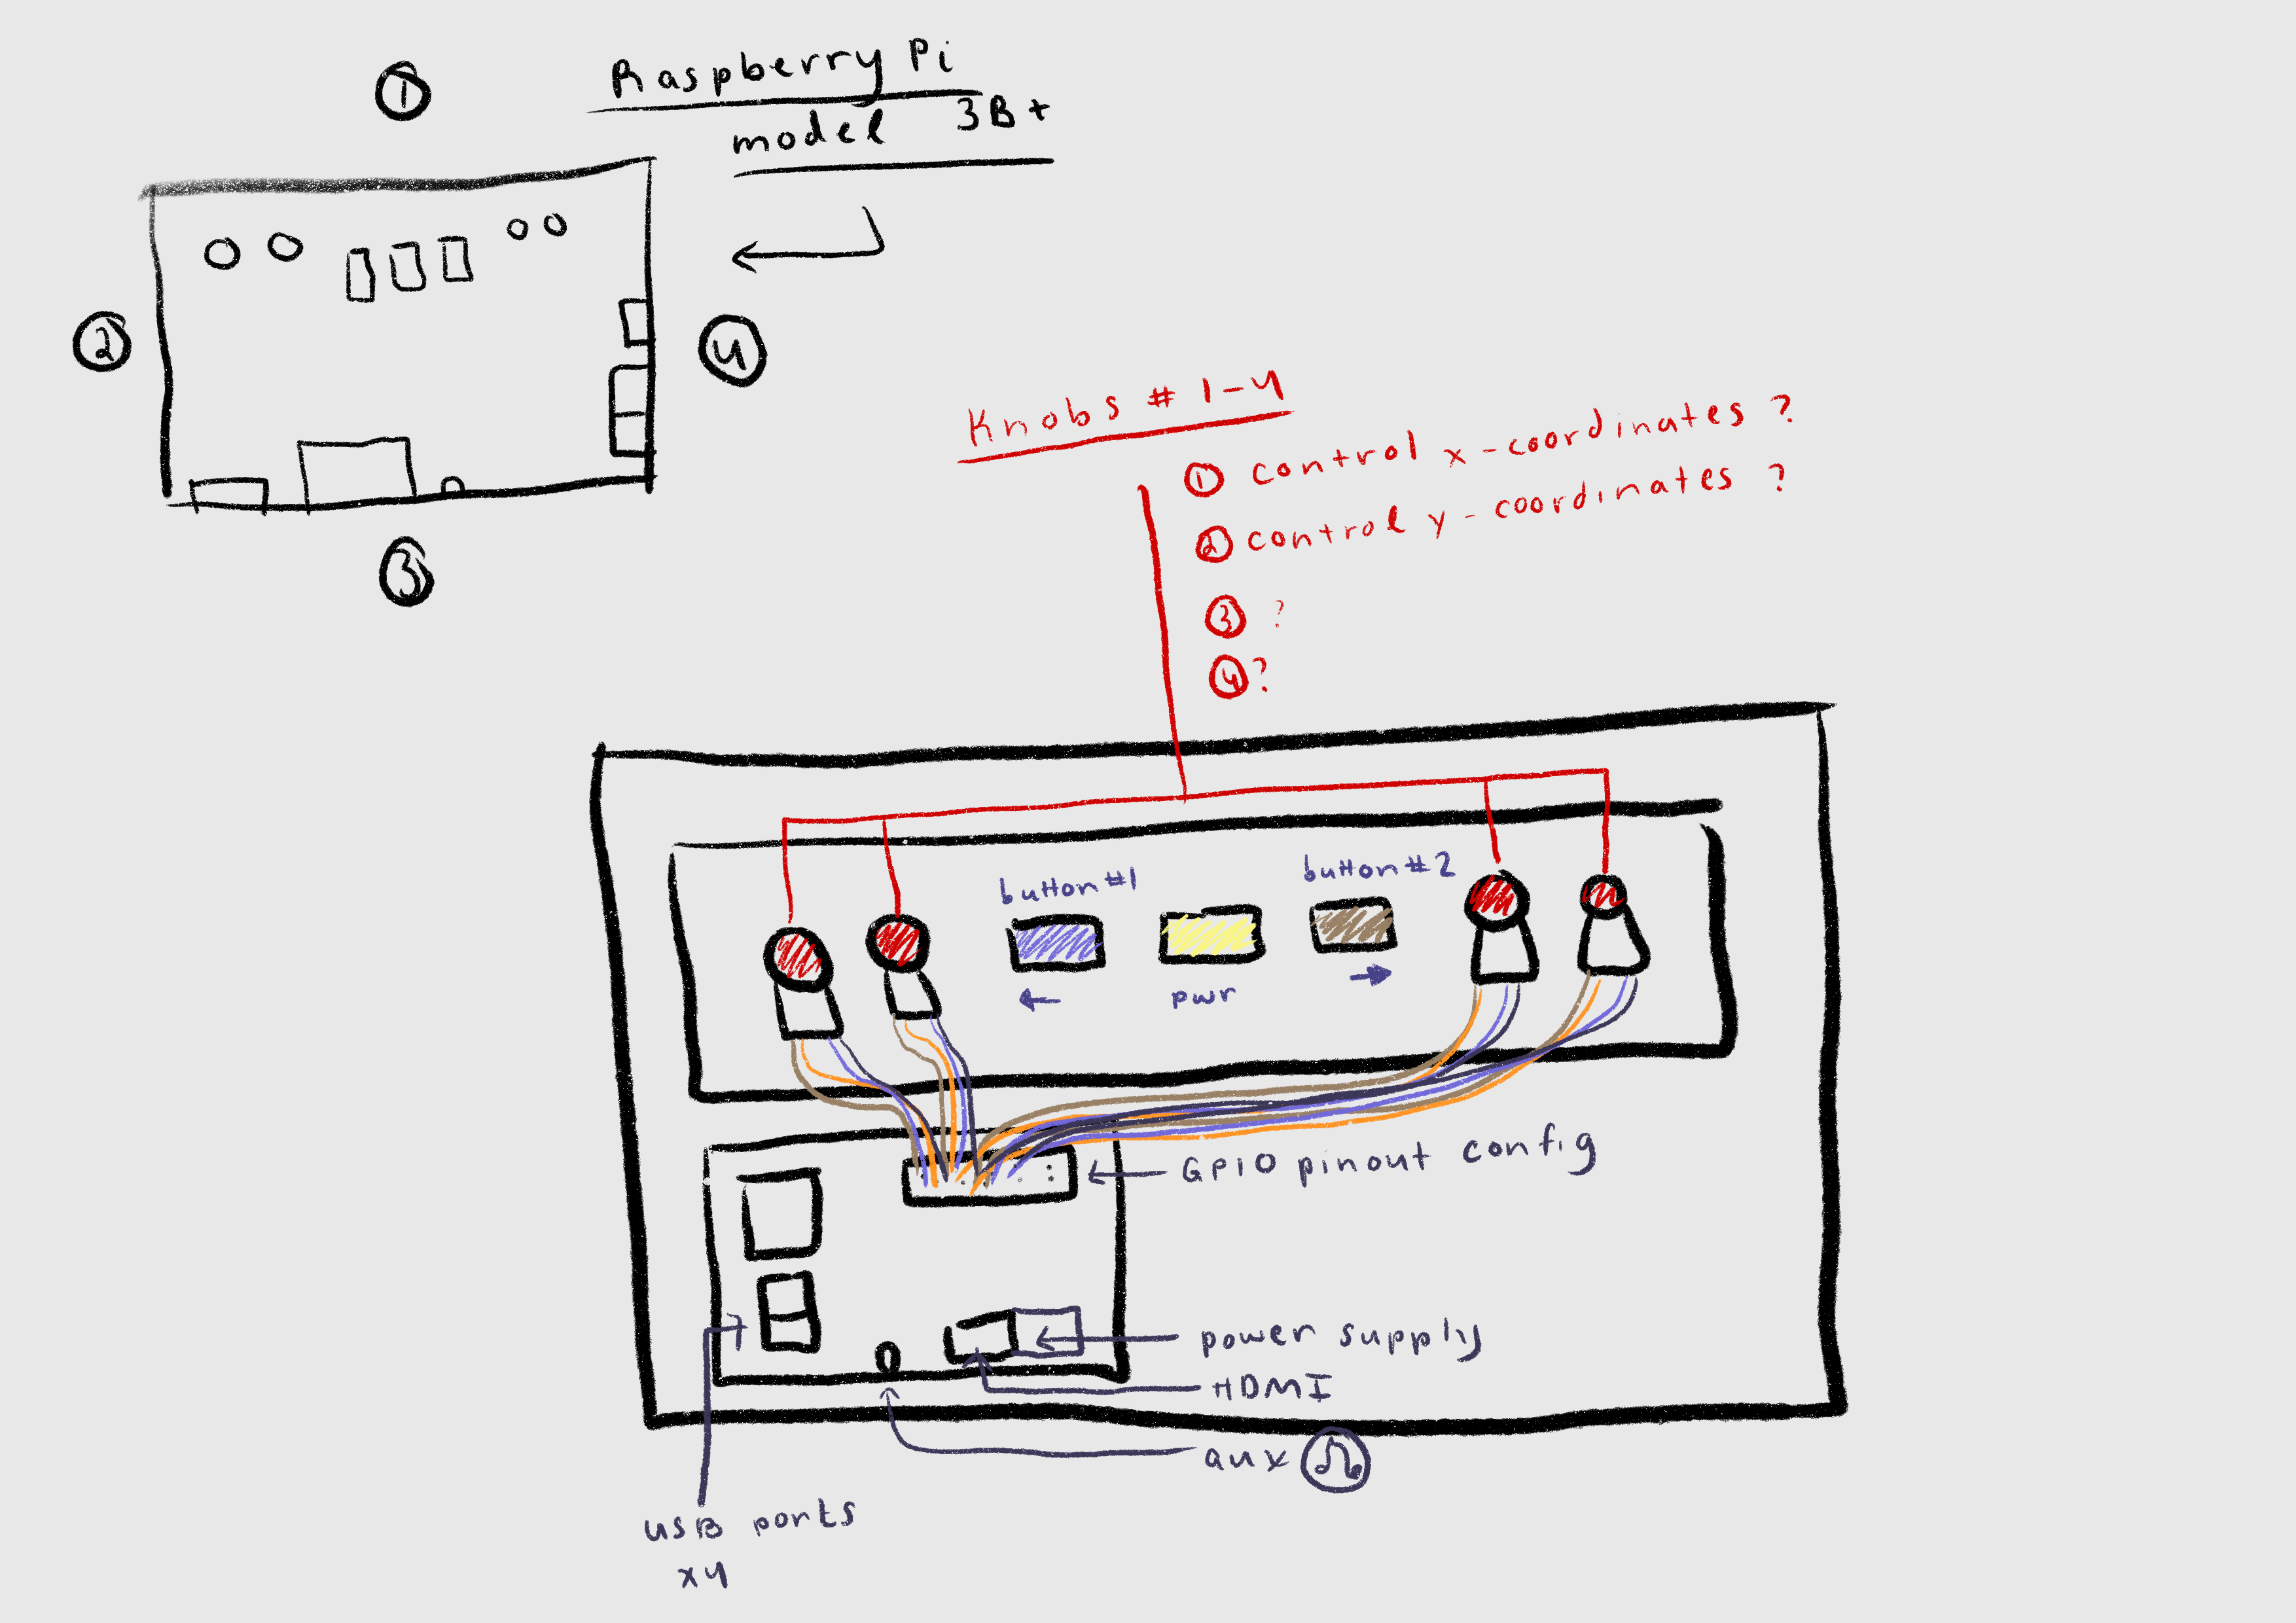 ①
Raspberry Pi
model 3B+
②
④
③
Knobs # 1-4
① control x-coordinates ?
② control y-coordinates ?
③ ?
④ ?
button #1
button #2
pwr
GPIO pinout config
power supply
HDMI
aux
USB ports
x4